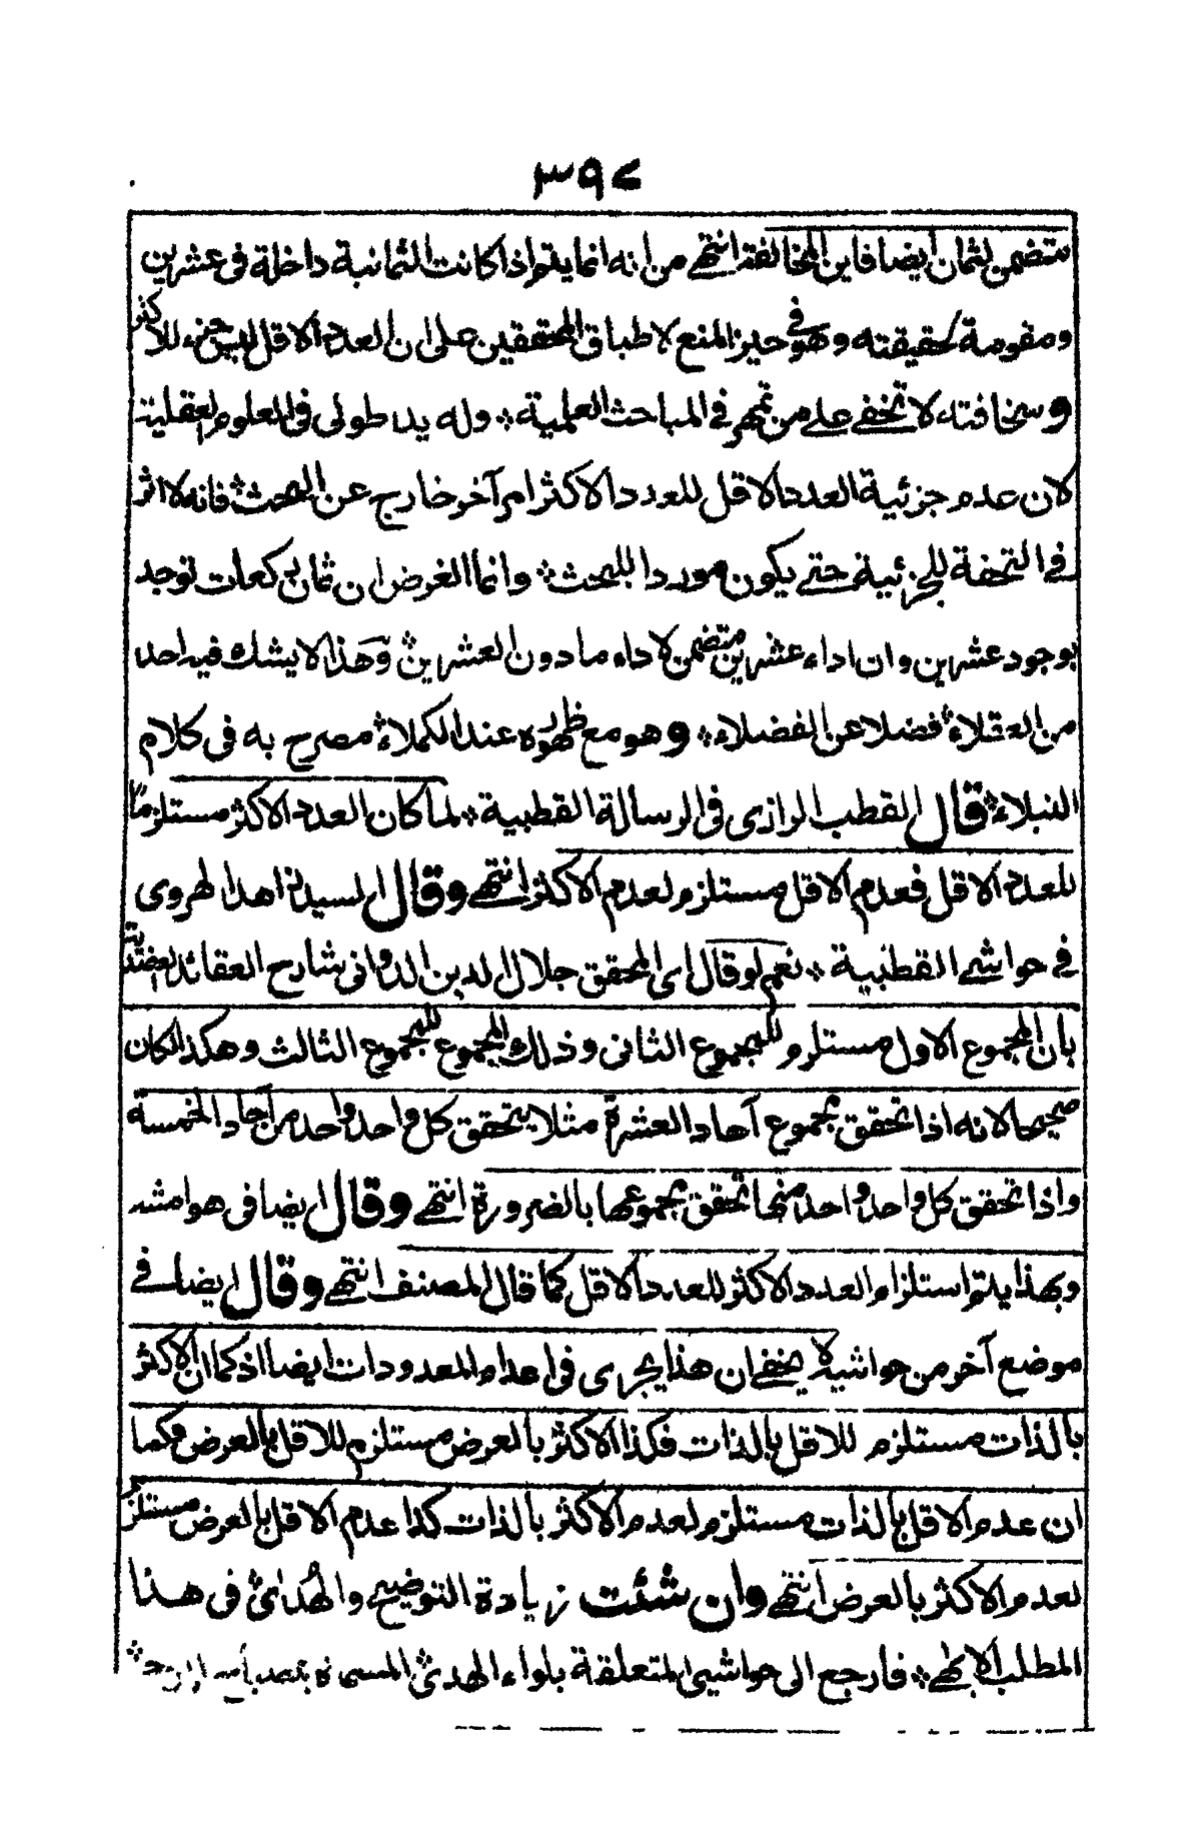 ٣٩٧
متضمن لثمان ايضا فاين المخالفة انتهى من انه انما يتم اذا كانت الثمانية داخلة فى عشرين
ومقومة لحقيقته وهو فى حيز المنع لاطباق المحققين على ان العدد الاقل ليس جزء للاكثر
وسخافته لا تخفى على من تمهر فى المباحث العلمية ۞ وله يد طولى فى العلوم العقلية
لان عدم جزئية العدد الاقل للعدد الاكثر امر آخر خارج عن البحث ۞ فانه لا اثر
فى التحفة للجزئية حتى يكون موردا للبحث ۞ وانما الغرض ان ثمان ركعات توجد
بوجود عشرين وان اداء عشرين متضمن لاداء ما دون العشرين ۞ وهذا لا يشك فيه احد
من العقلاء ۞ فضلا عن الفضلاء ۞ وهو مع ظهوره عند الكملاء ۞ مصرح به فى كلام
النبلاء ۞ قال القطب الرازى فى الرسالة القطبية ۞ لما كان العدد الاكثر مستلزما
للعدد الاقل فعدم الاقل مستلزم لعدم الاكثر انتهى وقال السيد زاهد الهروى
فى حواشى القطبية ۞ نعم لو قال اى المحقق جلال الدين الدوانى شارح العقائد العضدية
بان المجموع الاول مستلزم للمجموع الثانى وذلك المجموع للمجموع الثالث وهكذا لكان
صحيحا لانه اذا تحقق مجموع آحاد العشرة مثلا يتحقق كل واحد واحد من آحاد الخمسة
واذا تحقق كل واحد واحد منها تحقق مجموعها بالضرورة انتهى وقال ايضا فى هوامشه
وبهذا يتم استلزام العدد الاكثر للعدد الاقل كما قال المصنف انتهى وقال ايضا فى
موضع آخر من حواشيه لا يخفى ان هذا يجرى فى اعدام المعدودات ايضا اذ كما ان الاكثر
بالذات مستلزم للاقل بالذات فكذا الاكثر بالعرض مستلزم للاقل بالعرض وكما
ان عدم الاقل بالذات مستلزم لعدم الاكثر بالذات كذا عدم الاقل بالعرض مستلزم
لعدم الاكثر بالعرض انتهى وان شئت زيادة التوضيح والهدائ فى هذا
المطلب الابهى ۞ فارجع الى حواشيى المتعلقة بلواء الهدى ۞ المسماة